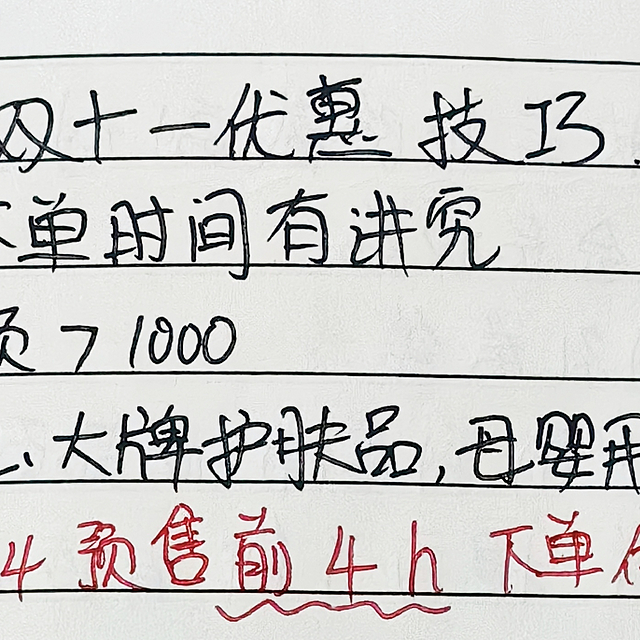 双十一优惠技巧.
下单时间有讲究
页 > 1000
心、大牌护肤品,母婴用
4 预售前4h 下单